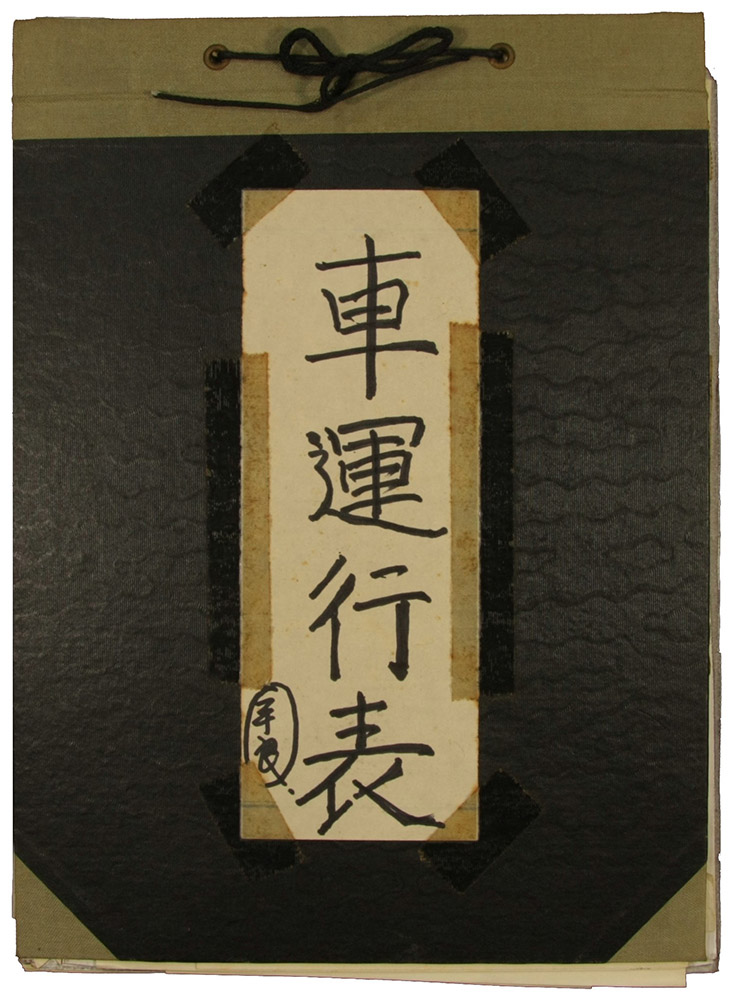 車運行表